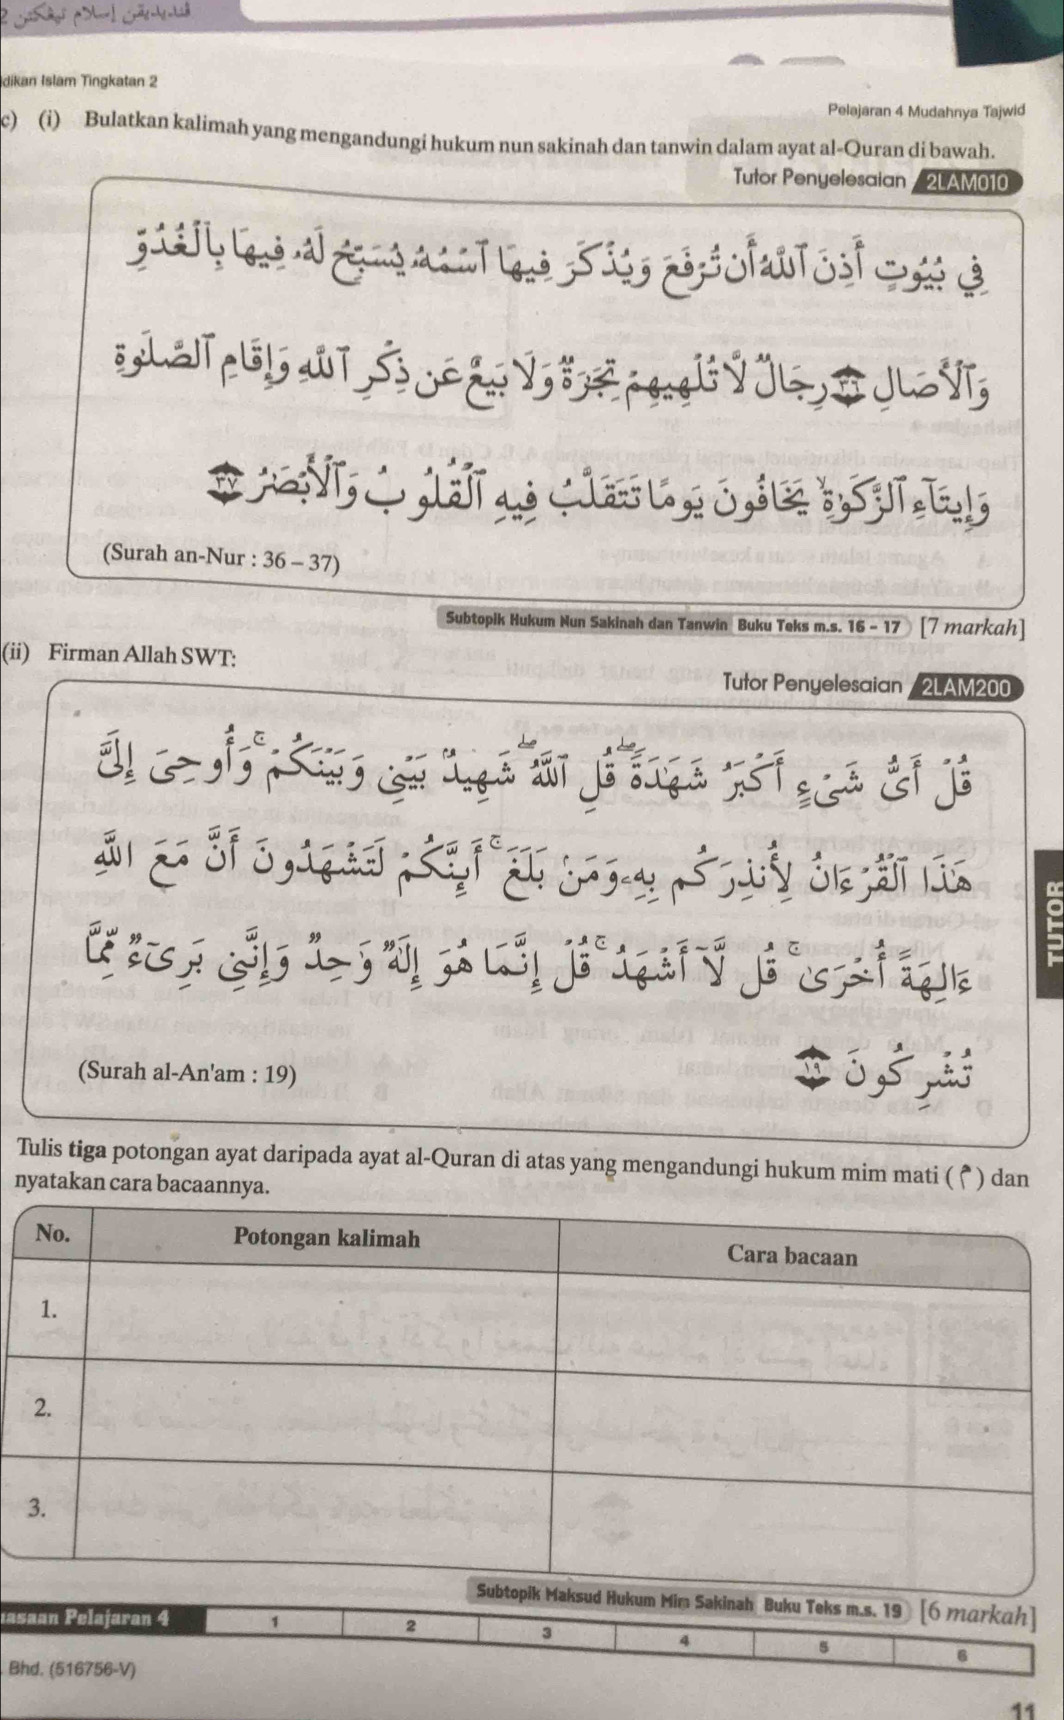 2 ڤنديديقن إسلام تيڠكتن
dikan Islam Tingkatan 2
Pelajaran 4 Mudahnya Tajwid
c) (i) Bulatkan kalimah yang mengandungi hukum nun sakinah dan tanwin dalam ayat al-Quran di bawah.
Tutor Penyelesaian 2LAM010
فِي بُيُوتٍ أَذِنَ ٱللَّهُ أَن تُرۡفَعَ وَيُذۡكَرَ فِيهَا ٱسۡمُهُۥ يُسَبِّحُ لَهُۥ فِيهَا بِٱلۡغُدُوِّ
وَٱلۡأٓصَالِ ٣٦ رِجَالٌ لَّا تُلۡهِيهِمۡ تِجَٰرَةٌ وَلَا بَيۡعٌ عَن ذِكۡرِ ٱللَّهِ وَإِقَامِ ٱلصَّلَوٰةِ
وَإِيتَآءِ ٱلزَّكَوٰةِ يَخَافُونَ يَوۡمًا تَتَقَلَّبُ فِيهِ ٱلۡقُلُوبُ وَٱلۡأَبۡصَٰرُ ٣٧
(Surah an-Nur : 36 – 37)
Subtopik Hukum Nun Sakinah dan Tanwin Buku Teks m.s. 16 - 17 [7 markah]
(ii) Firman Allah SWT:
Tutor Penyelesaian 2LAM200
قُلۡ أَيُّ شَيۡءٍ أَكۡبَرُ شَهَٰدَةً ۖ قُلِ ٱللَّهُ ۖ شَهِيدُۢ بَيۡنِي وَبَيۡنَكُمۡ ۚ وَأُوحِيَ إِلَيَّ
هَٰذَا ٱلۡقُرۡءَانُ لِأُنذِرَكُم بِهِۦ وَمَنۢ بَلَغَ ۚ أَئِنَّكُمۡ لَتَشۡهَدُونَ أَنَّ مَعَ ٱللَّهِ
ءَالِهَةً أُخۡرَىٰ ۚ قُل لَّآ أَشۡهَدُ ۚ قُلۡ إِنَّمَا هُوَ إِلَٰهٌ وَٰحِدٌ وَإِنَّنِي بَرِيٓءٌ مِّمَّا
تُشۡرِكُونَ ١٩
(Surah al-An'am : 19)
Tulis tiga potongan ayat daripada ayat al-Quran di atas yang mengandungi hukum mim mati ( مۡ ) dan
nyatakan cara bacaannya.
No. Potongan kalimah Cara bacaan
1.
2.
3.
Subtopik Maksud Hukum Mim Sakinah Buku Teks m.s. 19 [6 markah]
asaan Pelajaran 4 1 2 3 4 5 6
Bhd. (516756-V)
11
TUTOR